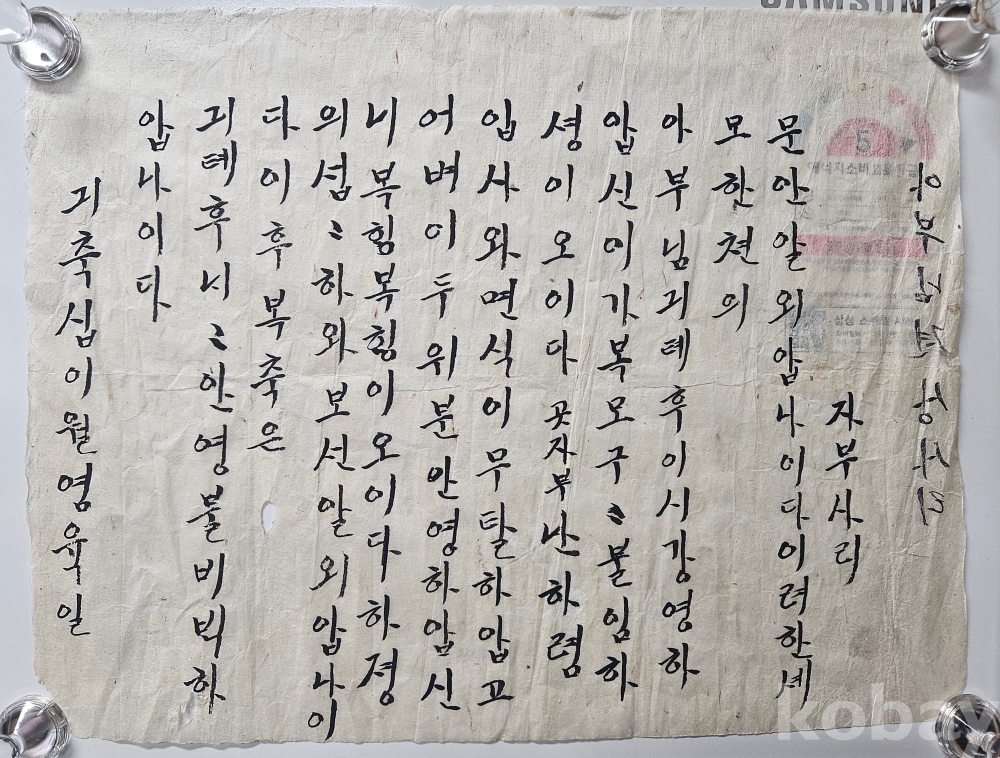 자부사리
문안알외압나이다이려한셰
모한쳔의
아부님긔톄후이시강영하
압신이가복모구〻불임하
셩이오이다곳자부난하렴
입사와면식이무탈하압고
어벼이두위분안영하압신
니복힝복힝이오이다하졍
의섭〻하와보션알외압나이
다이후복축은
긔톄후니〻안영불비빅하
압나이다
긔축십이월염육일
SAMSUN
kobay